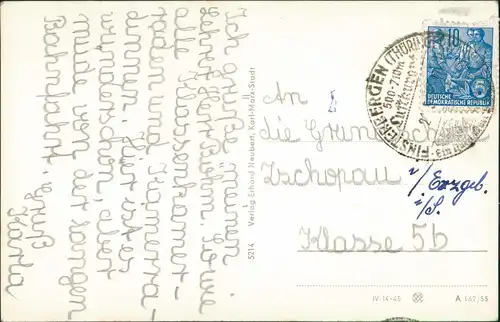 Ich grüße meinen
Lehrer Herr Böhm. Sowie
alle Klassenkamera-
raden und Kamera-
dinnen. Hier ist es
wunderschön, aber
müde von der langen
Bahnfahrt. Gruß
5214 Verlag Erhard Neubert, Karl-Marx-Stadt
FINSTERBERGEN (THÜRINGEN)
500-710m
Luftkurort
10
DEUTSCHE
DEMOKRATISCHE REPUBLIK
5
An
die Grundschule
Zschopau
i/Erzgeb.
i/S.
Klasse 5b
IV-14-45
A 162/55